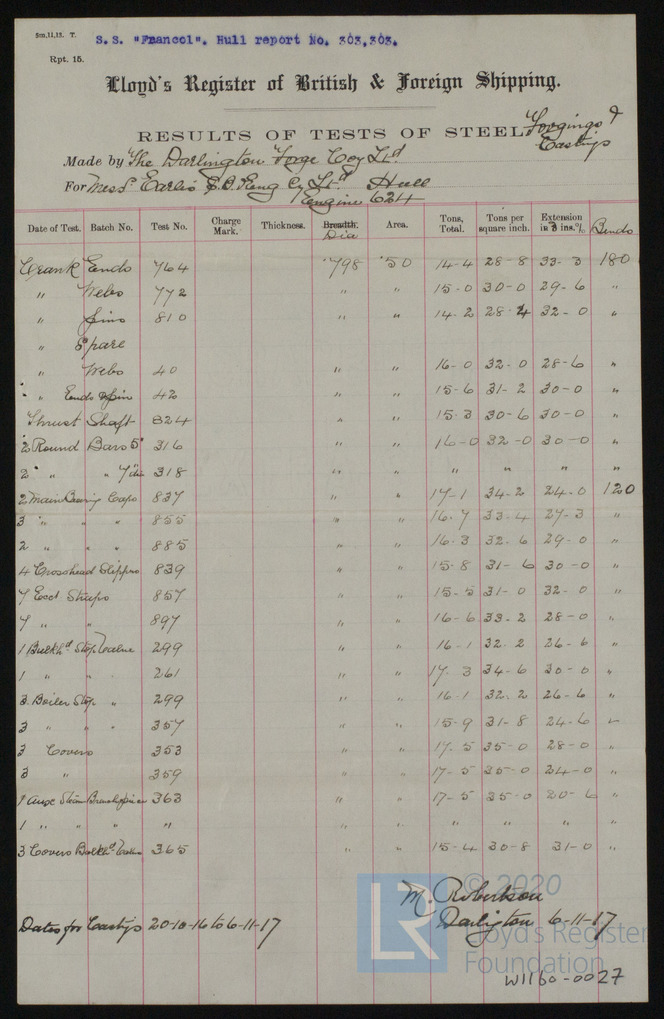 5m,11,15. T.
S.S. "Francol". Hull report No. 303,303.
Rpt. 15.
Lloyd's Register of British & Foreign Shipping.
RESULTS OF TESTS OF STEEL Forgings & Castings
Made by The Darlington Forge Coy Ltd
For Messrs Earles S.B. & Eng Cy Ltd Hull
Engine 624
Date of Test. Batch No. Test No. Charge Mark. Thickness. Breadth. Dia Area. Tons, Total. Tons per square inch. Extension in 3 ins. % Bends
Crank Ends 764 .798 .50 14-4 28-8 33-3 180
" Webs 772 " " 15-0 30-0 29-6 "
" pins 810 " " 14-2 28-4 32-0 "
" Spare
" Webs 40 " " 16-0 32-0 28-6 "
" " Ends & pin 42 " " 15-6 31-2 30-0 "
Thrust Shaft 824 " " 15-3 30-6 30-0 "
2 Round Bars 5" 316 " " 16-0 32-0 30-0 "
2 " " " 7"dia 318 " " " " " "
2 Main Bearing Caps 837 " " 17-1 34-2 24-0 120
3 " " " 855 " " 16.7 33-4 27-3 "
2 " " " 885 " " 16.3 32.6 29-0 "
4 Crosshead Slippers 839 " " 15-8 31-6 30-0 "
7 Ecct Straps 857 " " 15-5 31-0 32-0 "
7 " " 897 " " 16-6 33-2 28-0 "
1 Bulkhd Stop Valve 299 " " 16-1 32.2 26-6 "
1 " " " 261 " " 17.3 34-6 30-0 "
3 Boiler Stop " 299 " " 16-1 32.2 26-6 "
3 " " " 357 " " 15-9 31-8 24-6 "
3 Covers 353 " " 17.5 35-0 28-0 "
3 " 359 " " 17-5 35-0 24-0 "
1 Auxe Steam 363 " " 17-5 35-0 20-6 "
1 " " " " " " " " " "
3 Covers Bulkhd Valve 365 " " 15-4 30-8 31-0 "
M. Robertson
Darlington 6-11-17
Dates for Castings 20-10-16 to 6-11-17
© 2020
LR
Lloyd's Register
Foundation
W1160-0027